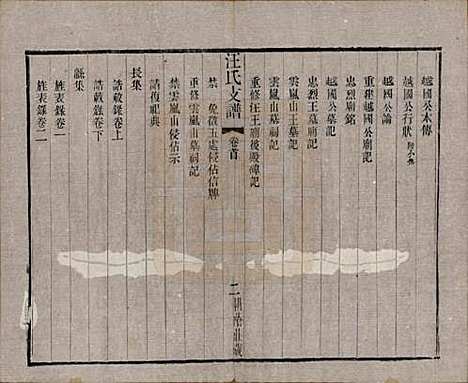 越國公本傳
越國公行狀
越國公論
重建越國公廟記
忠烈廟銘
越國公墓記
忠烈王墓廟記
雲嵐山王墓記
雲嵐山墓祠記
重修汪王廟後殿記
汪氏支譜
卷首
二
禁 免徵玉處侵佔信牌
重修雲嵐山墓祠記
禁雲嵐山侵佔示
請復祀典
長集
誥敕錄卷上
誥敕錄卷下
繇集
旌表錄卷一
旌表錄卷二